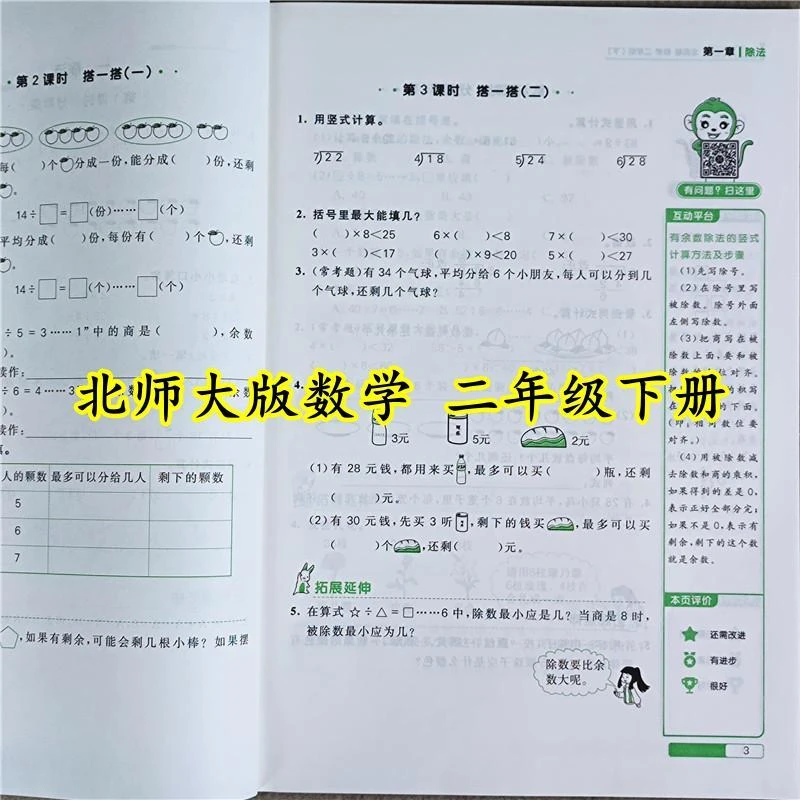 第2课时 搭一搭(一)
)个 分成一份,能分成( )份,还剩
14÷□=□(份)……□(个)
平均分成( )份,每份有( )个 ,还剩
14÷□=□(个)……□(个)
÷5=3……1”中的商是( ),余数
)。
读作:
÷6=4……3
余数
读作:
人的颗数 最多可以分给几人 剩下的颗数
5
6
7
,如果有剩余,可能会剩几根小棒?如果摆
第一章 | 除法
第3课时 搭一搭(二)
1. 用竖式计算。
7)22 4)18 5)24 6)28
2. 括号里最大能填几?
( )×8<25 6×( )<8 7×( )<30
3×( )<17 ( )×9<20 5×( )<27
3. (常考题)有34个气球,平均分给6个小朋友,每人可以分到几
个气球,还剩几个气球?
北师大版数学 二年级下册
4.
3元 5元 2元
(1)有28元钱,都用来买 ,最多可以买( )瓶,还剩
( )元。
(2)有30元钱,先买3听 ,剩下的钱买 ,最多可以买
( )个 ,还剩( )元。
拓展延伸
5. 在算式☆÷△=□……6中,除数最小应是几?当商是8时,
被除数最小应为几?
除数要比余
数大呢。
有问题?扫这里
互动平台
有余数除法的竖式
计算方法及步骤
(1)先写除号。
(2)在除号里写
被除数。除号外面
左侧写除数。
(3)把商写在被
除数上面,要和被
对齐。
积写
的下面。
(即:相同数位要
对齐。)
(4)用被除数减
去除数和商的乘积,
如果得到的差是0,
表示正好全部分完;
如果不是0,表示有
剩余,剩下的这个数
就是余数。
本页评价
还需改进
有进步
很好
3